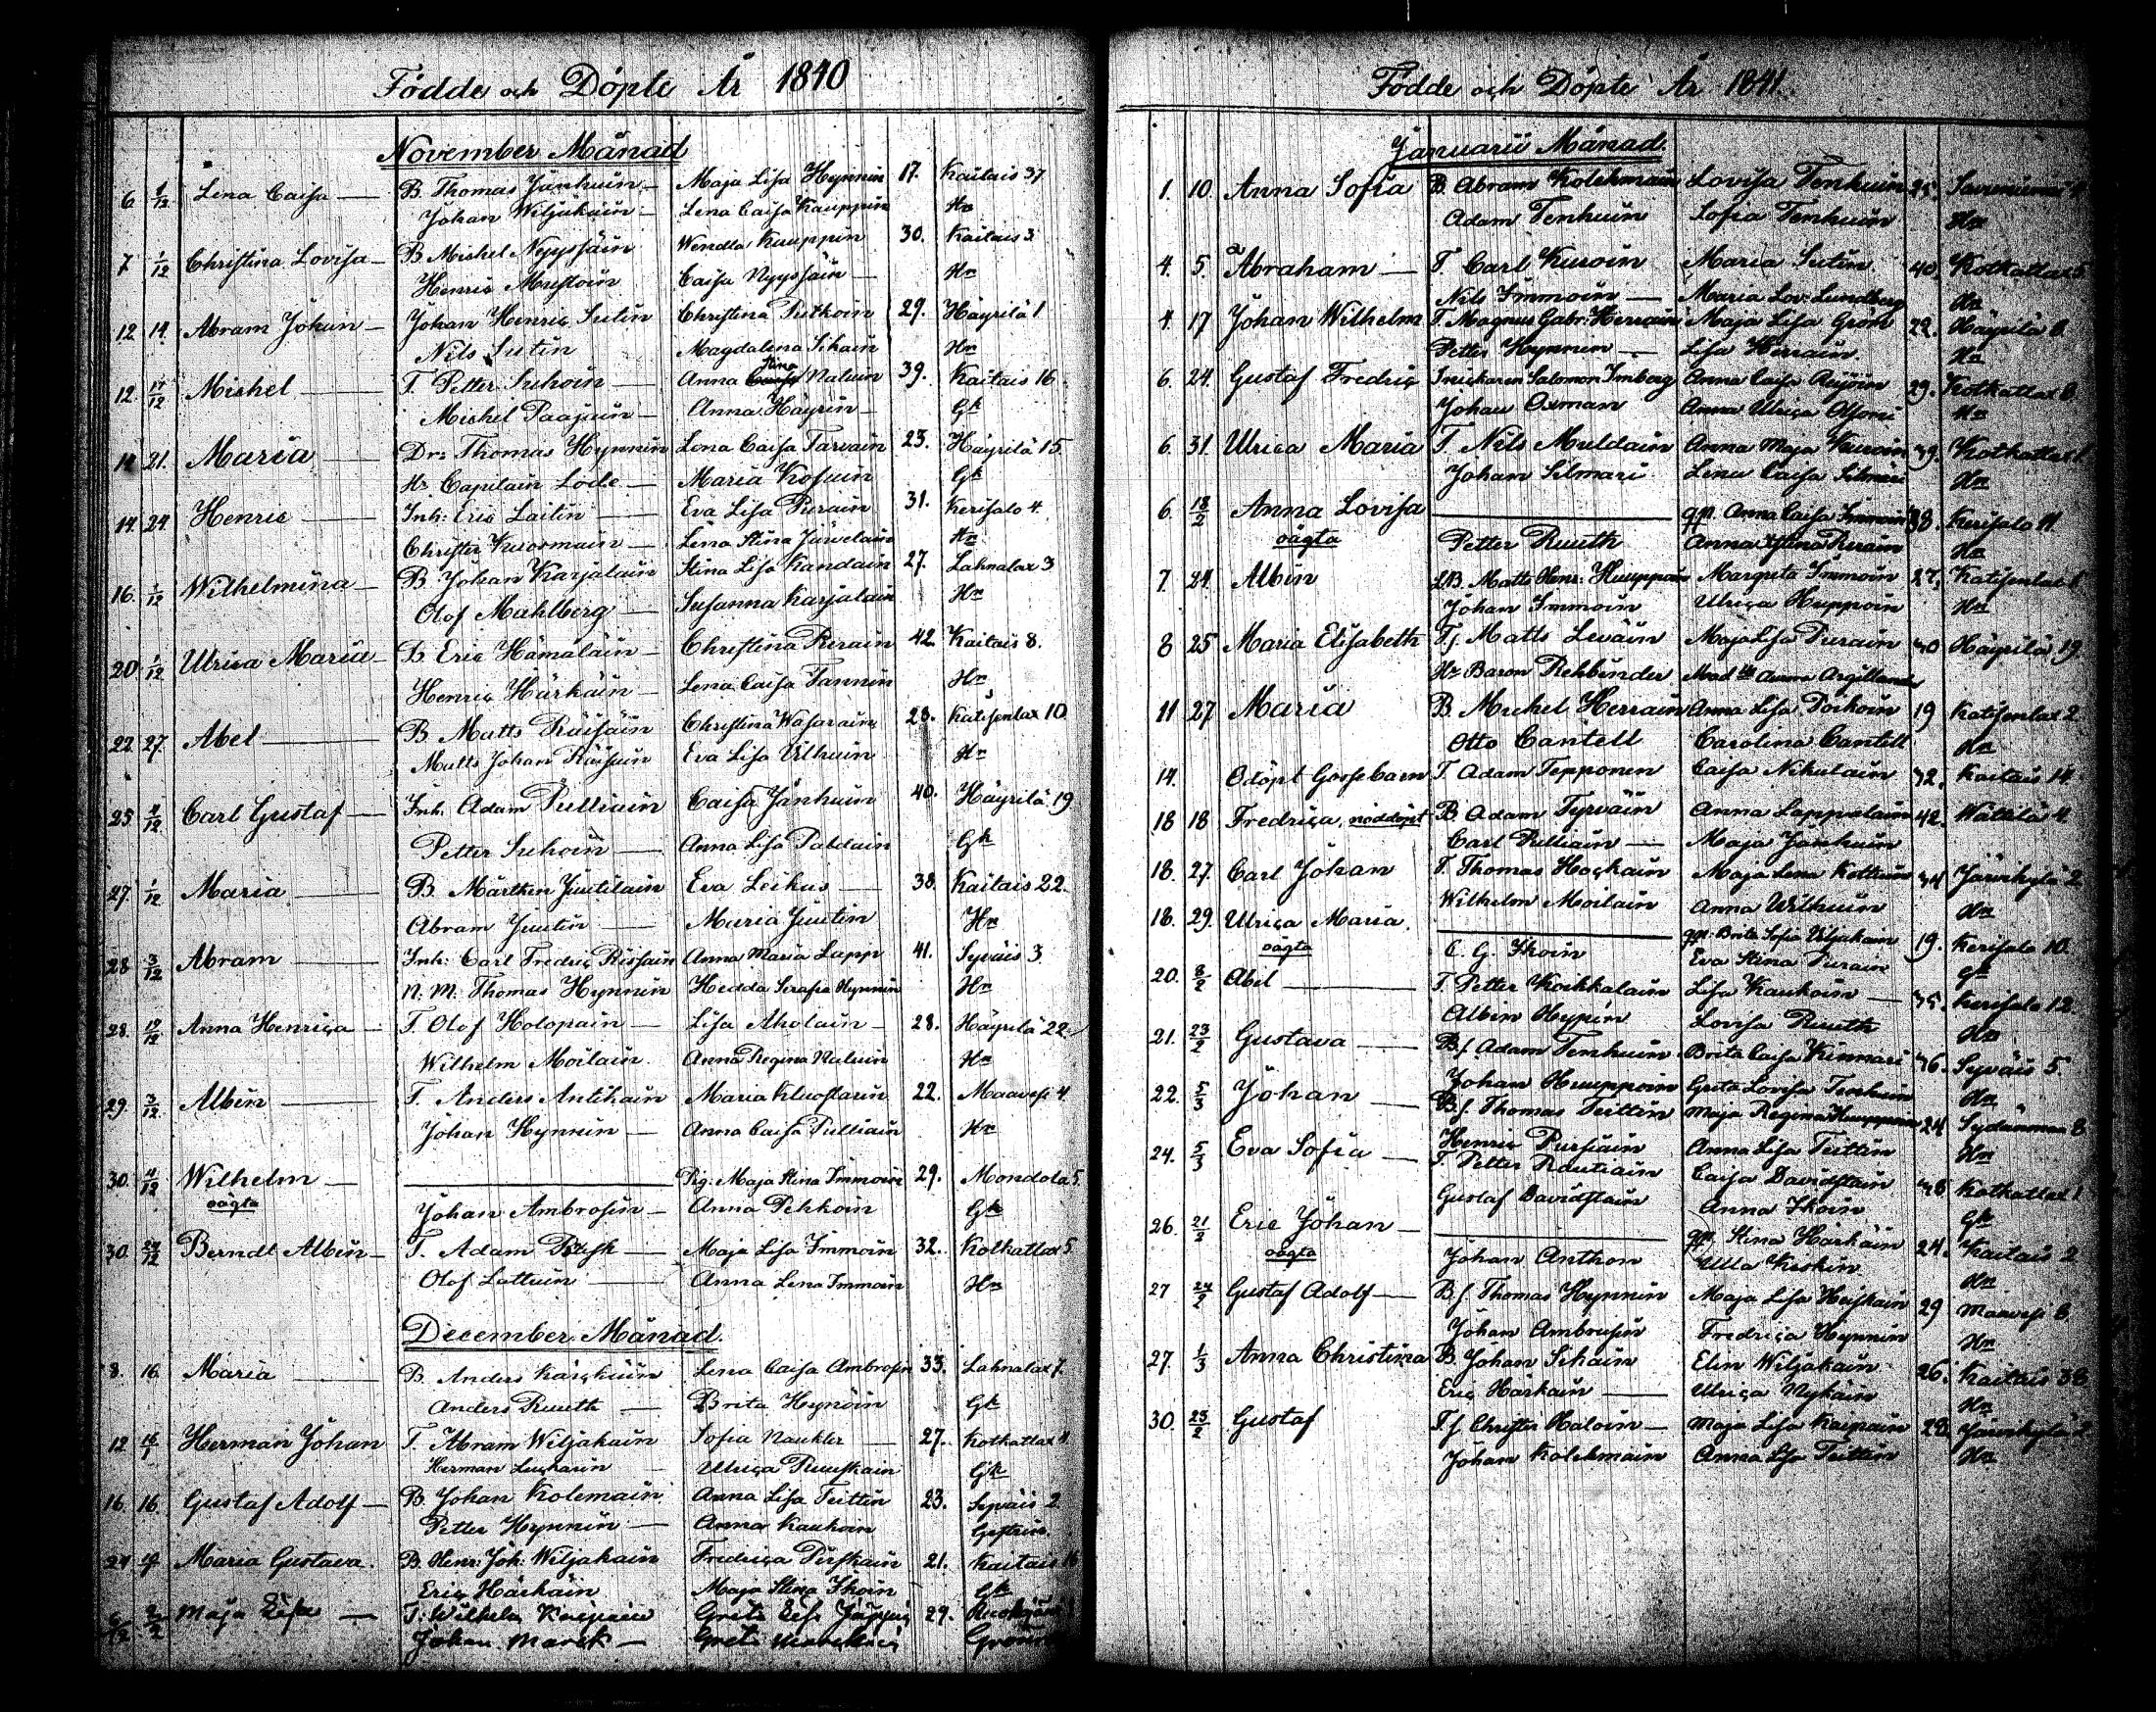 Födde och Döpte År 1840
November Månad
6 1/12 Lena Caisa B. Thomas Jänhuin Maja Lisa Hynnin 17. Kaitais 37
Johan Wiljakain Lena Caisa Kauppin Hn
7 1/12 Christina Lovisa B Michel Nyyssäin Wendla Kauppin 30. Kaitais 3
Henric Mustoin Caisa Nyyssäin Hn
12 14 Abram Johan Johan Henric Sutin Christina Putkoin 29. Häyrilä 1
Nils Sutin Magdalena Sikain Hn
12. 17/12 Michel T. Petter Suhoin Anna Stina Naluin 39. Kaitais 16
Michel Paajain Anna Häyrin Gk
21. Maria Dr: Thomas Hynnin Lena Caisa Tarvain 23. Häyrilä 15.
Hr Capitain Lode Maria Kosuin Gk
14. 24 Henric Inh: Eric Laitin Eva Lisa Purain 31. Kerisalo 4
Christer Kuosmain Lena Stina Järvelain Hn
16. 1/12 Wilhelmina B Johan Karjalain Stina Lisa Kandain 27. Lahnalax 3
Olof Mahlberg Susanna Karjalain Hn
20 1/12 Ulrica Maria B Eric Hämäläin Christina Purain 42 Kaitais 8.
Henric Härkäin Lena Caisa Tannin Hn
22. 27. Abel B. Matts Räisäin Christina Wasarain 28. Katisenlax 10
Matts Johan Räisäin Eva Lisa Ulhuin Hn
25 4/12 Carl Gustaf Inh. Adam Pulliain Caisa Jänhuin 40. Häyrilä 19
Petter Suhoin Anna Lisa Paldain Gk
27. 1/12 Maria B. Mårthen Juutilain Eva Leikus 38. Kaitais 22.
Abram Juutin Maria Juutin Hn
28 3/12 Abram Inh: Carl Fredric Rissain Anna Maria Lapp 41. Syväis 3
N. M. Thomas Hynnin Hedda Serafia Hynnin Hn
28. 19/12 Anna Henrica T. Olof Holopain Lisa Aholain 28. Häyrilä 22
Wilhelm Moilain Anna Regina Naluin Hn
29. 3/12 Albin T. Anders Antikain Maria Kluostarin 22. Maavesi 4
Johan Hynnin Anna Caisa Pulliain Hn
30. 4/12 Wilhelm Pig. Maja Stina Immoin 29. Mondola 5
oägta Johan Ambrosin Anna Pehkoin Gk
30. 24/12 Berndt Albin T. Adam Rusk Maja Lisa Immoin 32. Kotkatlax 5
Olof Lattuin Anna Lena Immoin Hn
December Månad.
8. 16 Maria B. Anders Kärckäin Lena Caisa Ambrosin 33. Lahnalax 7.
Anders Ruuth Brita Hynöin Gk
12 Herman Johan T. Abram Wiljakain Sofia Naukler 27. Kotkatlax
Herman Luckarin Ulrica Ruuskain Gk
16. 16. Gustaf Adolf B. Johan Kolemain Anna Lisa Teittin 23. Syväis 2
Petter Hynnin Anna Kauhoin
24 Maria Gustava. B. Henr: Joh: Wiljakain Fredrica Pirskain 21. Kaitais 16
Eric Härkäin Maja Stina Ikoin Gk
Maja Lisa T. Wilhelm Kaipain Greta Lisa Jäppin 29.
Johan Marck Greta
Födde och Döpte År 1841.
Januarii Månad.
1. 10. Anna Sofia B. Abram Kolehmain Lovisa Tenhuin 25.
Adam Tenhuin Sofia Tenhuin Hn
4. 5. Abraham T. Carl Kuroin Maria Sutin 40. Kotkatlax 5
Nils Immoin Maria Lov: Lundberg Hn
4. 17 Johan Wilhelm T. Magnus Gabr: Herrain Maja Lisa Grön 22. Häyrilä 8.
Petter Hynnin Lisa Herrain Hn
6. 24. Gustaf Fredric Snickaren Salomon Imberg Anna Caisa Auvoin 29. Kotkatlax 8
Johan Oxman Anna Ulrica Olsoni Hn
6. 31. Ulrica Maria T. Nils Muldain Anna Maja Kuroin 39. Kotkatlax 1
Johan Silmari Lena Caisa Silmari Hn
6. 18/2 Anna Lovisa qp. Anna Caisa Immoin 38. Kerisalo 11
oägta Petter Ruuth Anna Stina Purain Hn
7. 24. Albin LB. Matts Henr: Huuppoin Margreta Immoin 27. Katisenlax 1
Johan Immoin Ulrica Huppoin Hn
8 25 Maria Elisabeth Tf. Matts Leväin Maja Lisa Purain 40 Häyrilä 19.
Hr Baron Rehbinder Mad:lle Aurora Argillander
11 27 Maria B. Michel Herrain Anna Lisa Poikoin 19 Katisenlax 2
Otto Cantell Carolina Cantell Hn
14. Odöpt Gossebarn T. Adam Tepponen Caisa Nikulain 32. Kaitais 14
18 18 Fredrica, nöddöpt B. Adam Tyrväin Anna Lappalain 42. Wättilä 4.
Carl Pulliain Maja Jänhuin
18. 27. Carl Johan T. Thomas Hockain Maja Lena Kottuin 34 Järvikylä 2
Wilhelm Moilain Anna Wilhuin Hn
18. 29. Ulrica Maria. qp: Brita Sofia Viljakain 19. Kerisalo 10.
oägta C. G. Ikoin Eva Stina Purain Gk
20. 8/2 Abel T. Petter Koikkalain Lisa Kaukoin 35. Kerisalo 12.
Albin Hypin Lovisa Ruuth Hn
21. 23/2 Gustava Bf. Adam Tenhuin Brita Caisa Kinnari 36. Syväis 5
Johan Huuppoin Greta Lovisa Tenhuin Hn
22. 5/3 Johan Bf. Thomas Teittin Maja Regina Huuppoin 24 Sydänmaa 8
Henric Pursiain Anna Lisa Teittin Hn
24. 5/3 Eva Sofia T. Petter Rautiain Caisa Davidstain 38 Kotkatlax 1
Gustaf Davidstain Anna Ikoin Gk
26. 21/2 Eric Johan qp. Stina Härkäin 24. Kaitais 2
oägta Johan Anthon Ulla Keskin Hn
27 24/2 Gustaf Adolf Bf. Thomas Hynnin Maja Lisa Heiskain 29 Maavesi 6
Johan Ambrusin Fredrica Hynnin Hn
27. 1/3 Anna Christina B. Johan Sikain Elin Wiljakain 26. Kaitais 38
Eric Härkäin Ulrica Nykäin Hn
30. 23/2 Gustaf Tf Christer Haloin Maja Lisa Kaipain 28 Järvikylä 2
Johan Kolehmain Anna Lisa Teittin Hn